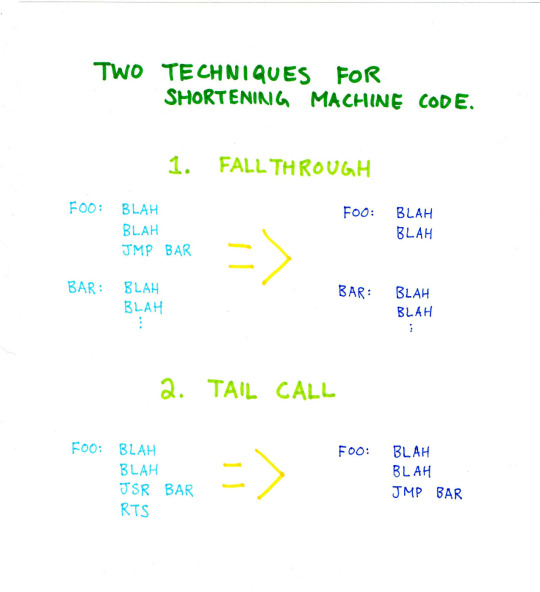 TWO TECHNIQUES FOR
SHORTENING MACHINE CODE.
1. FALLTHROUGH
FOO: BLAH
BLAH
JMP BAR
BAR: BLAH
BLAH
⋮
=>
FOO: BLAH
BLAH
BAR: BLAH
BLAH
⋮
2. TAIL CALL
FOO: BLAH
BLAH
JSR BAR
RTS
=>
FOO: BLAH
BLAH
JMP BAR